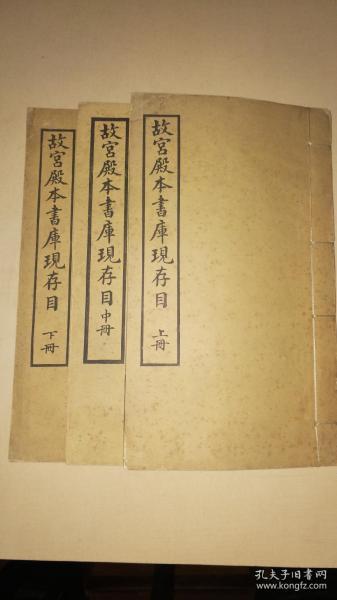 故宮殿本書庫現存目 上冊
故宮殿本書庫現存目 中冊
故宮殿本書庫現存目 下冊
孔夫子旧书网
www.kongfz.com